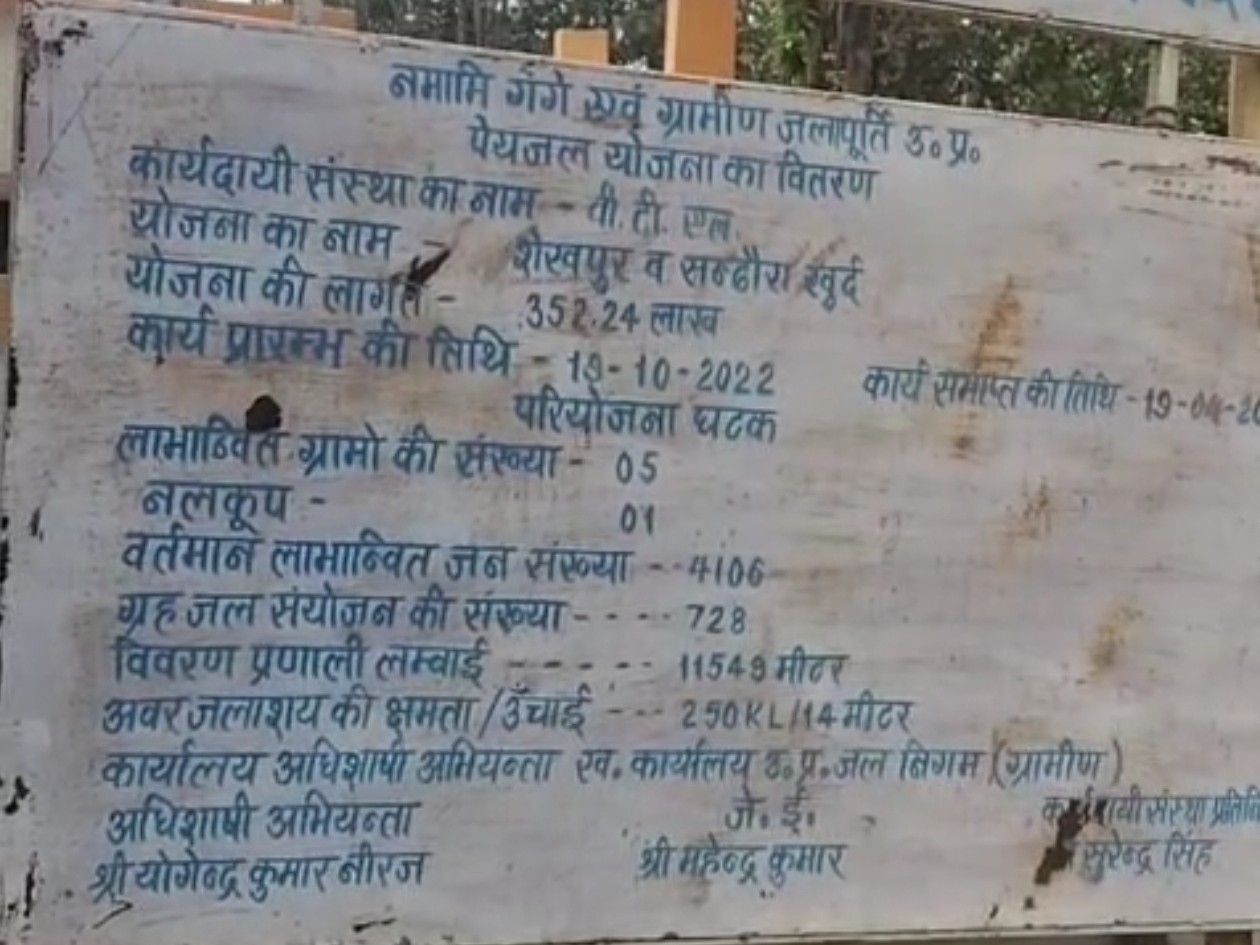 नमामि गंगे एवं ग्रामीण जलापूर्ति उ॰ प्र॰
पेयजल योजना का वितरण
कार्यदायी संस्था का नाम - वी. टी. एल
योजना का नाम - शेखपुर व सन्ढौरा खुर्द
योजना की लागत - 352.24 लाख
कार्य प्रारम्भ की तिथि - 19-10-2022 कार्य समाप्त की तिथि - 19-04-2
परियोजना घटक
लाभान्वित ग्रामो की संख्या - 05
नलकूप - 01
वर्तमान लाभान्वित जन संख्या -- 4106
ग्रह जल संयोजन की संख्या - - - -- 728
विवरण प्रणाली लम्बाई - - - - - 11549 मीटर
अवर जलाशय की क्षमता / उँचाई --- 250KL/14 मीटर
कार्यालय अधिशाषी अभियन्ता ख॰ कार्यालय उ॰ प्र॰ जल निगम (ग्रामीण)
अधिशाषी अभियन्ता जे॰ ई॰ संस्था
श्री योगेन्द्र कुमार नीरज श्री महेन्द्र कुमार सुरेन्द्र सिंह